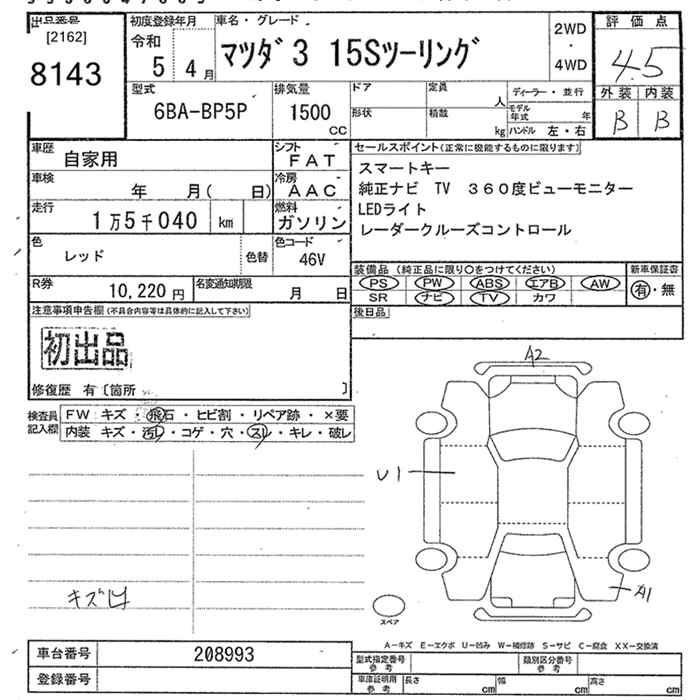 出品番号
[2162]
8143
初度登録年月
令和
5 4月
車名・グレード
マツダ3 15Sツーリング
2WD
・
4WD
評価点
4.5
外装 内装
B B
型式
6BA-BP5P
排気量
1500
CC
ドア
定員
人
形状
積載
kg
ディーラー・並行
モデル年式 年
ハンドル 左・右
車歴
自家用
シフト
FAT
車検
年 月( 日)
冷房
AAC
走行
1万5千040 km
燃料
ガソリン
色
レッド
色替
色コード
46V
R券
10,220円
名変通知期限
月 日
セールスポイント(正常に機能するものに限ります)
スマートキー
純正ナビ TV 360度ビューモニター
LEDライト
レーダークルーズコントロール
装備品 (純正品に限り○をつけてください)
PS PW ABS エアB AW
SR ナビ TV カワ
新車保証書
有・無
後日品
注意事項申告欄(不具合内容等は具体的に記入して下さい)
初出品
修復歴 有〔箇所 〕
検査員記入欄
FW キズ・飛石・ヒビ割・リペア跡・×要
内装 キズ・汚レ・コゲ・穴・スレ・キレ・破レ
A2
U1
A1
スペア
キズ凹
A-キズ E-エクボ U-凹み W-補修跡 S-サビ C-腐食 XX-交換済
車台番号 208993
登録番号
型式指定番号 参考
類別区分番号 参考
車庫証明用 参考
長さ cm 幅 cm 高さ cm